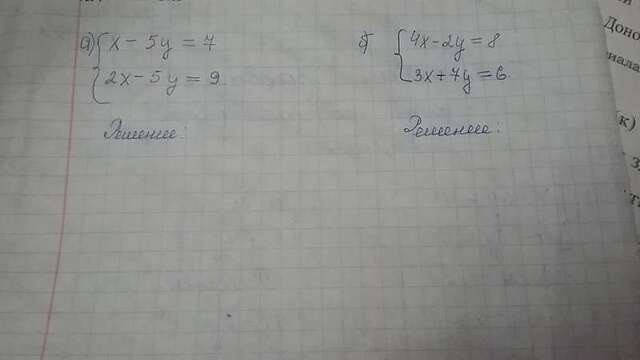 а) { x - 5y = 7
2x - 5y = 9
Решение:
б) { 4x - 2y = 8
3x + 7y = 6
Решение:
Доно
нала
(к)